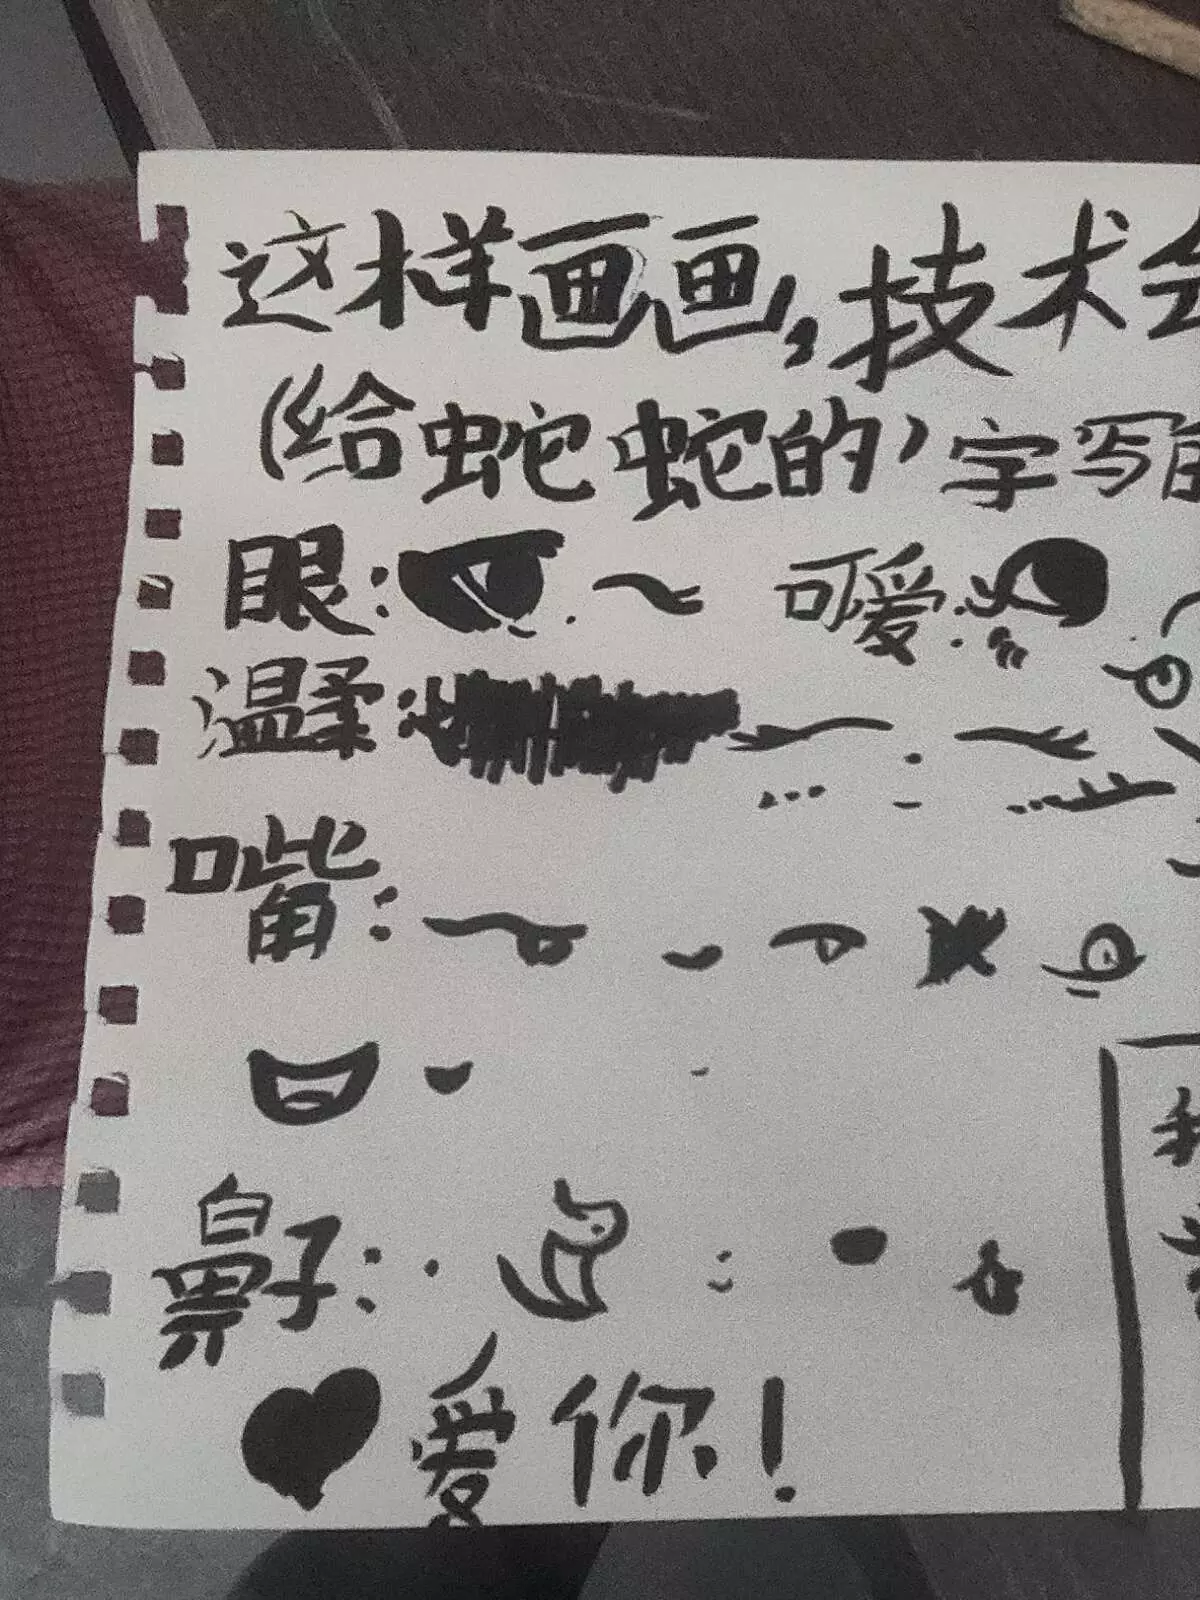 这样画画,技术会
(给蛇蛇的,字写的
眼: 可爱:
温柔:
嘴:
鼻子:
爱你!